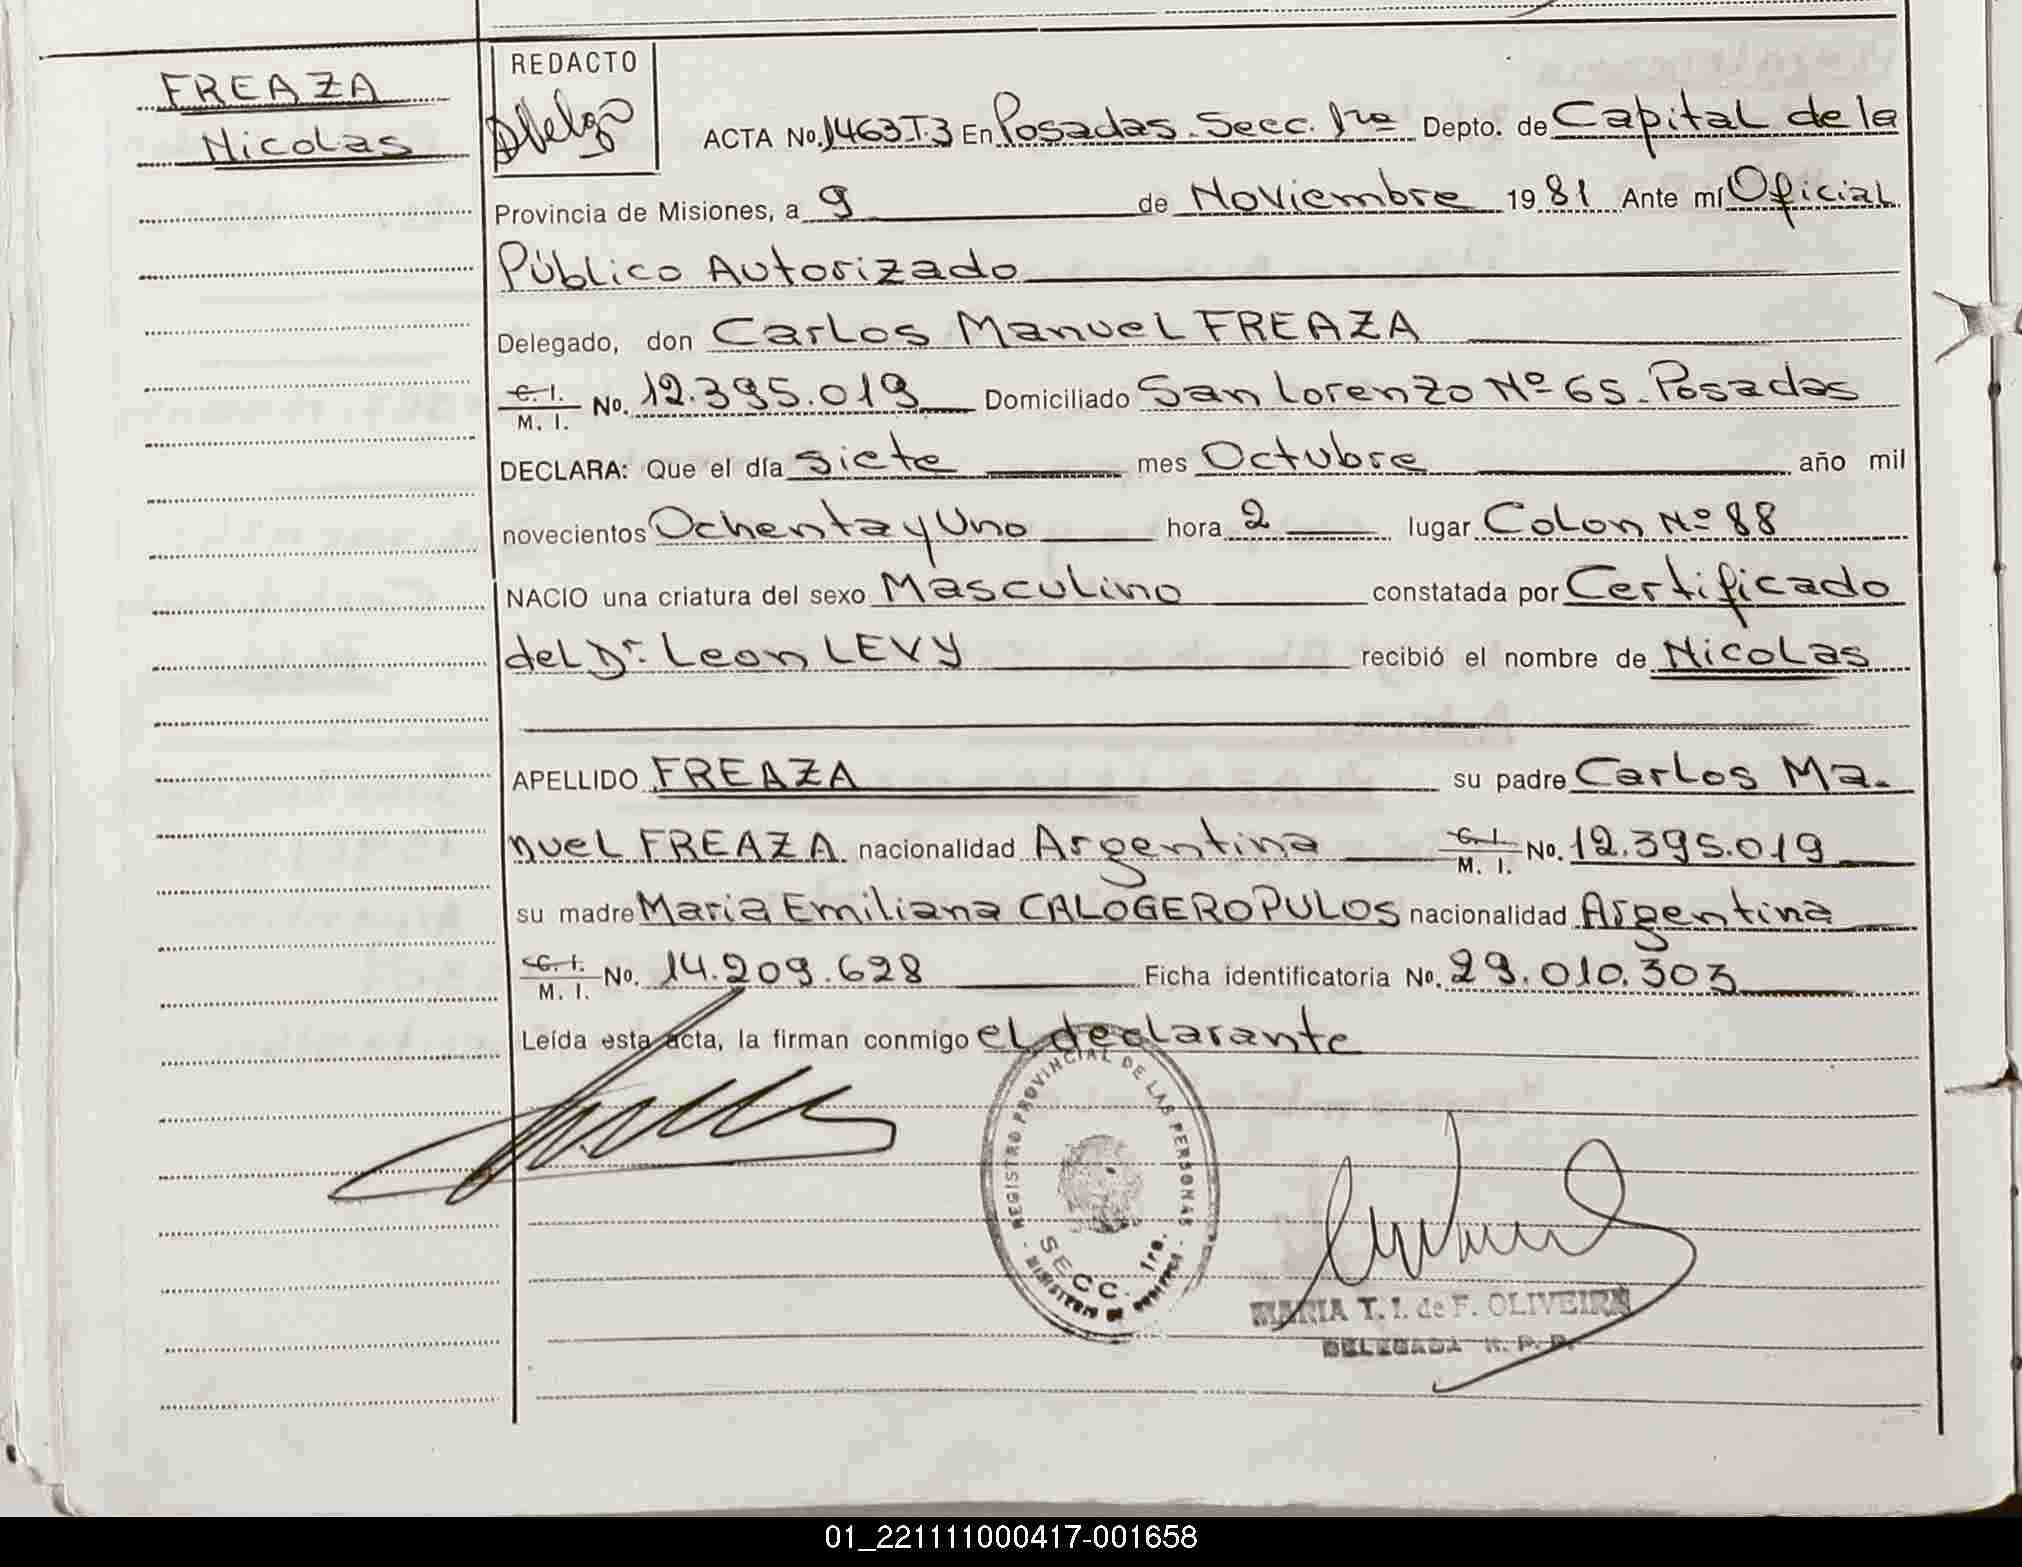 FREAZA
Nicolas
REDACTO
ACTA No. 1463 T.3 En Posadas. Secc. 1ra Depto. de Capital de la
Provincia de Misiones, a 9 de Noviembre 1981 Ante mí Oficial
Público Autorizado
Delegado, don Carlos Manuel FREAZA
C. I. M. I. No. 12.395.019 Domiciliado San Lorenzo Nº 65. Posadas
DECLARA: Que el día siete mes Octubre año mil
novecientos Ochenta y Uno hora 2 lugar Colon Nº 88
NACIO una criatura del sexo Masculino constatada por Certificado
del Dr. Leon LEVY recibió el nombre de Nicolas
APELLIDO FREAZA su padre Carlos Ma-
nuel FREAZA nacionalidad Argentina C. I. M. I. No. 12.395.019
su madre Maria Emiliana CALOGEROPULOS nacionalidad Argentina
C. I. M. I. No. 14.209.628 Ficha identificatoria No. 29.010.303
Leída esta acta, la firman conmigo el declarante
REGISTRO PROVINCIAL DE LAS PERSONAS
SECC. 1ra.
MINISTERIO DE
MARIA T. I. de F. OLIVEIRA
DELEGADA R. P. P.
01_221111000417-001658